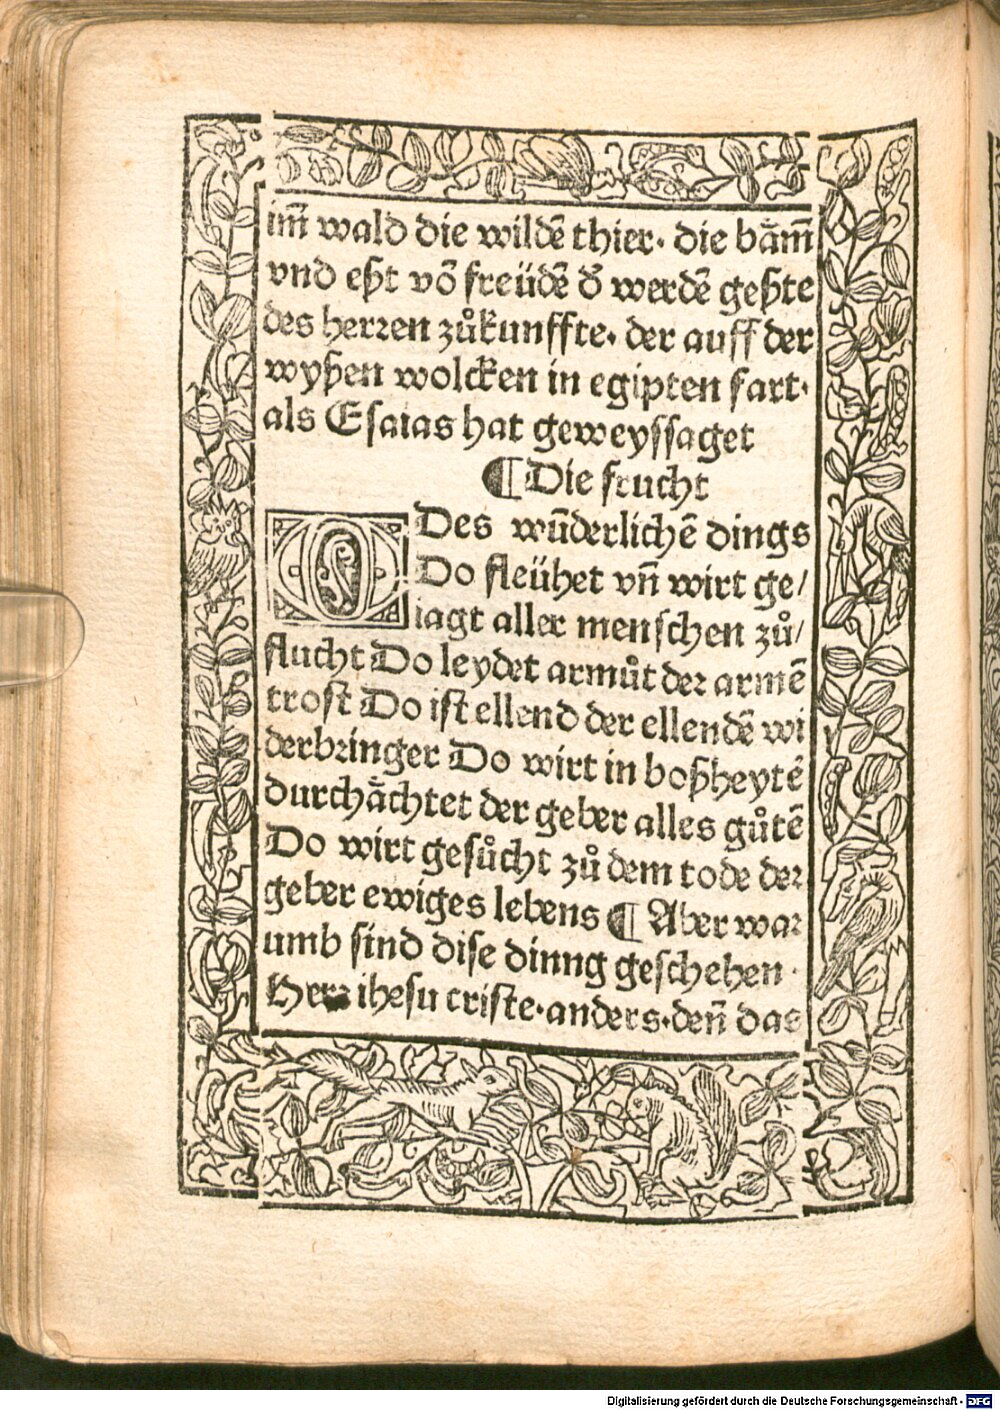 im̅ wald die wildē thier· die båm̅
vnd eßt võ freüdē d' werdē geßte
des herꝛen zůkunffte· der auff der
wyßen wolcken in egipten fart·
als Esaias hat geweyssaget
¶ Die frucht
O Des wūderlichē dings
Do fleühet vn̄ wirt ge/
iagt aller menschen zů/
flucht Do leydet armůt deꝛ armē
trost Do ist ellend der ellendē wi
derbꝛinger Do wirt in boßheytē
durchåchtet der geber alles gůtē
Do wirt gesůcht zů dem tode deꝛ
geber ewiges lebens ¶ Aber waꝛ
umb sind dise dinng geschehen ·
Herꝛ ihesu criste· anders· den̄ das
Digitalisierung gefördert durch die Deutsche Forschungsgemeinschaft - DFG